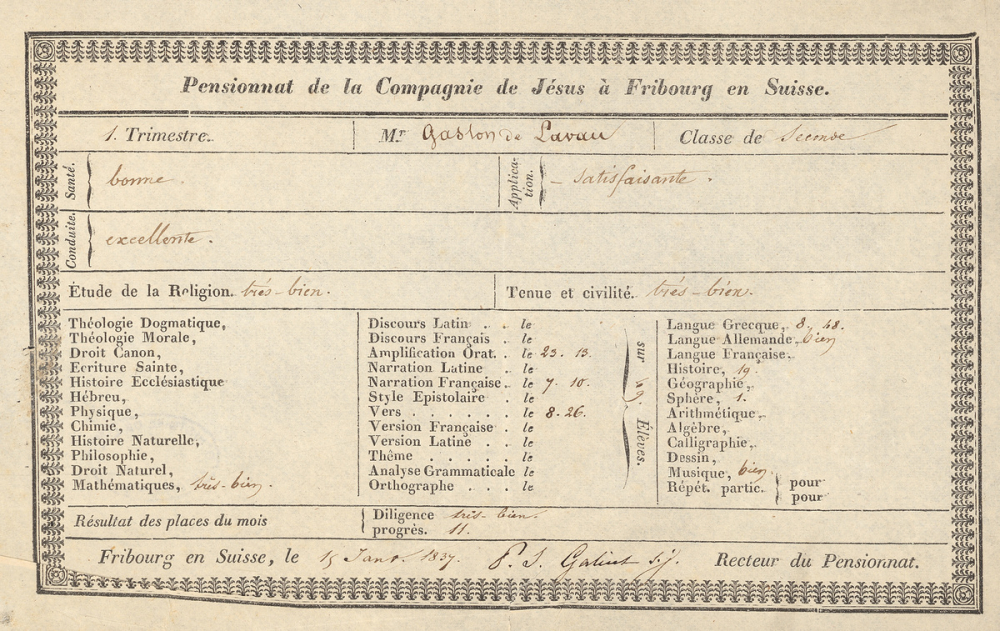 Pensionnat de la Compagnie de Jésus à Fribourg en Suisse.
1. Trimestre. Mr Gaston de Lavau Classe de Seconde
Santé. bonne. Applica-tion. – satisfaisante.
Conduite. excellente.
Étude de la Religion. très-bien. Tenue et civilité. très-bien.
Théologie Dogmatique,
Théologie Morale,
Droit Canon,
Ecriture Sainte,
Histoire Ecclésiastique
Hébreu,
Physique,
Chimie,
Histoire Naturelle,
Philosophie,
Droit Naturel,
Mathématiques, très-bien.
Discours Latin . . le
Discours Français . le
Amplification Orat. . le 23. 13.
Narration Latine . le
Narration Française . . le 7. 10.
Style Epistolaire . le
Vers . . . . . . le 8. 26.
Version Française . le
Version Latine . . le
Thême . . . . . le
Analyse Grammaticale le
Orthographe . . . le
sur Elèves.
Langue Grecque, 8. 48.
Langue Allemande, bien
Langue Française.
Histoire, 19.
Géographie,
Sphère, 1.
Arithmétique,
Algèbre,
Calligraphie,
Dessin,
Musique, bien
Répét. partic. pour
pour
Résultat des places du mois
Diligence très-bien.
progrès. 11.
Fribourg en Suisse, le 15 Janv. 1837. P. J. Galicet s.j. Recteur du Pensionnat.